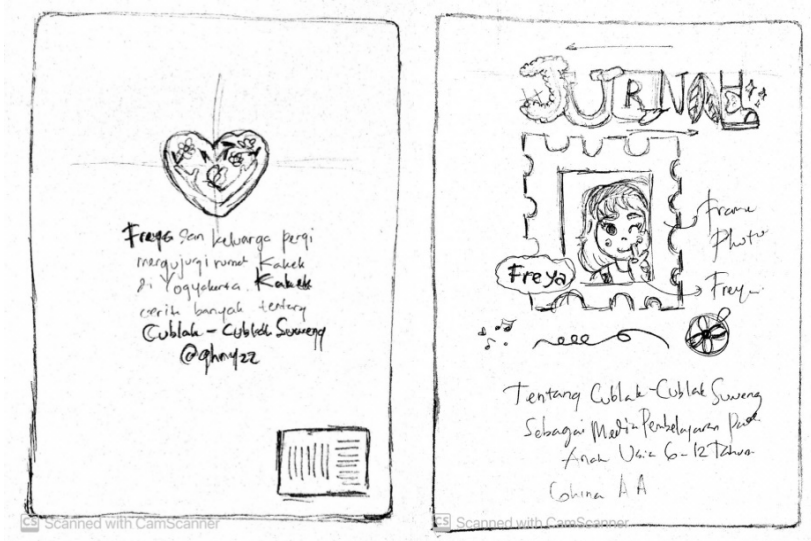 Freya dan keluarga pergi
mengujungi rumah Kakek
di Yogyakarta. Kakek
cerita banyak tentang
Cublak - Cublak Suweng
@ghnyzz
CS Scanned with CamScanner
JURNAL
Frame
Photo
Freya
Freya
Tentang Cublak-Cublak Suweng
Sebagai Media Pembelajaran Pada
Anak Usia 6-12 Tahun
A A
CS Scanned with CamScanner